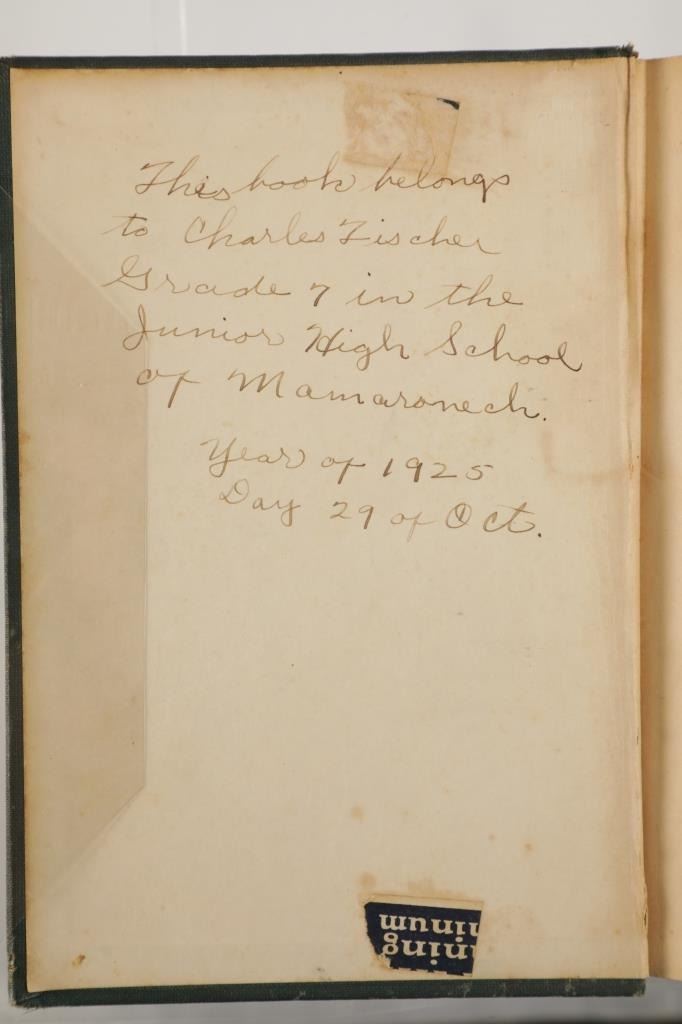 This book belongs
to Charles Fischer
Grade 7 in the
Junior High School
of Mamaroneck.
Year of 1925
Day 29 of Oct.
ning
inum